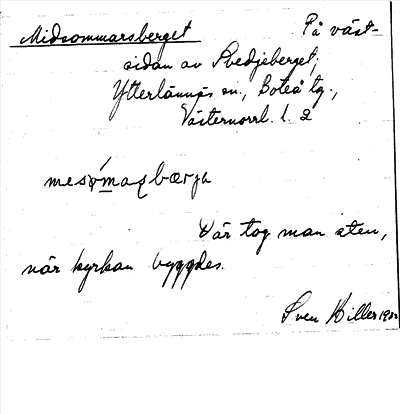 Midsommarsberget På väst-
sidan av Svedjeberget,
Ytterlännäs sn., Boteå tg.,
Västernorrl. l. 2
Där tog man sten,
när kyrkan byggdes.
Sven Hiller